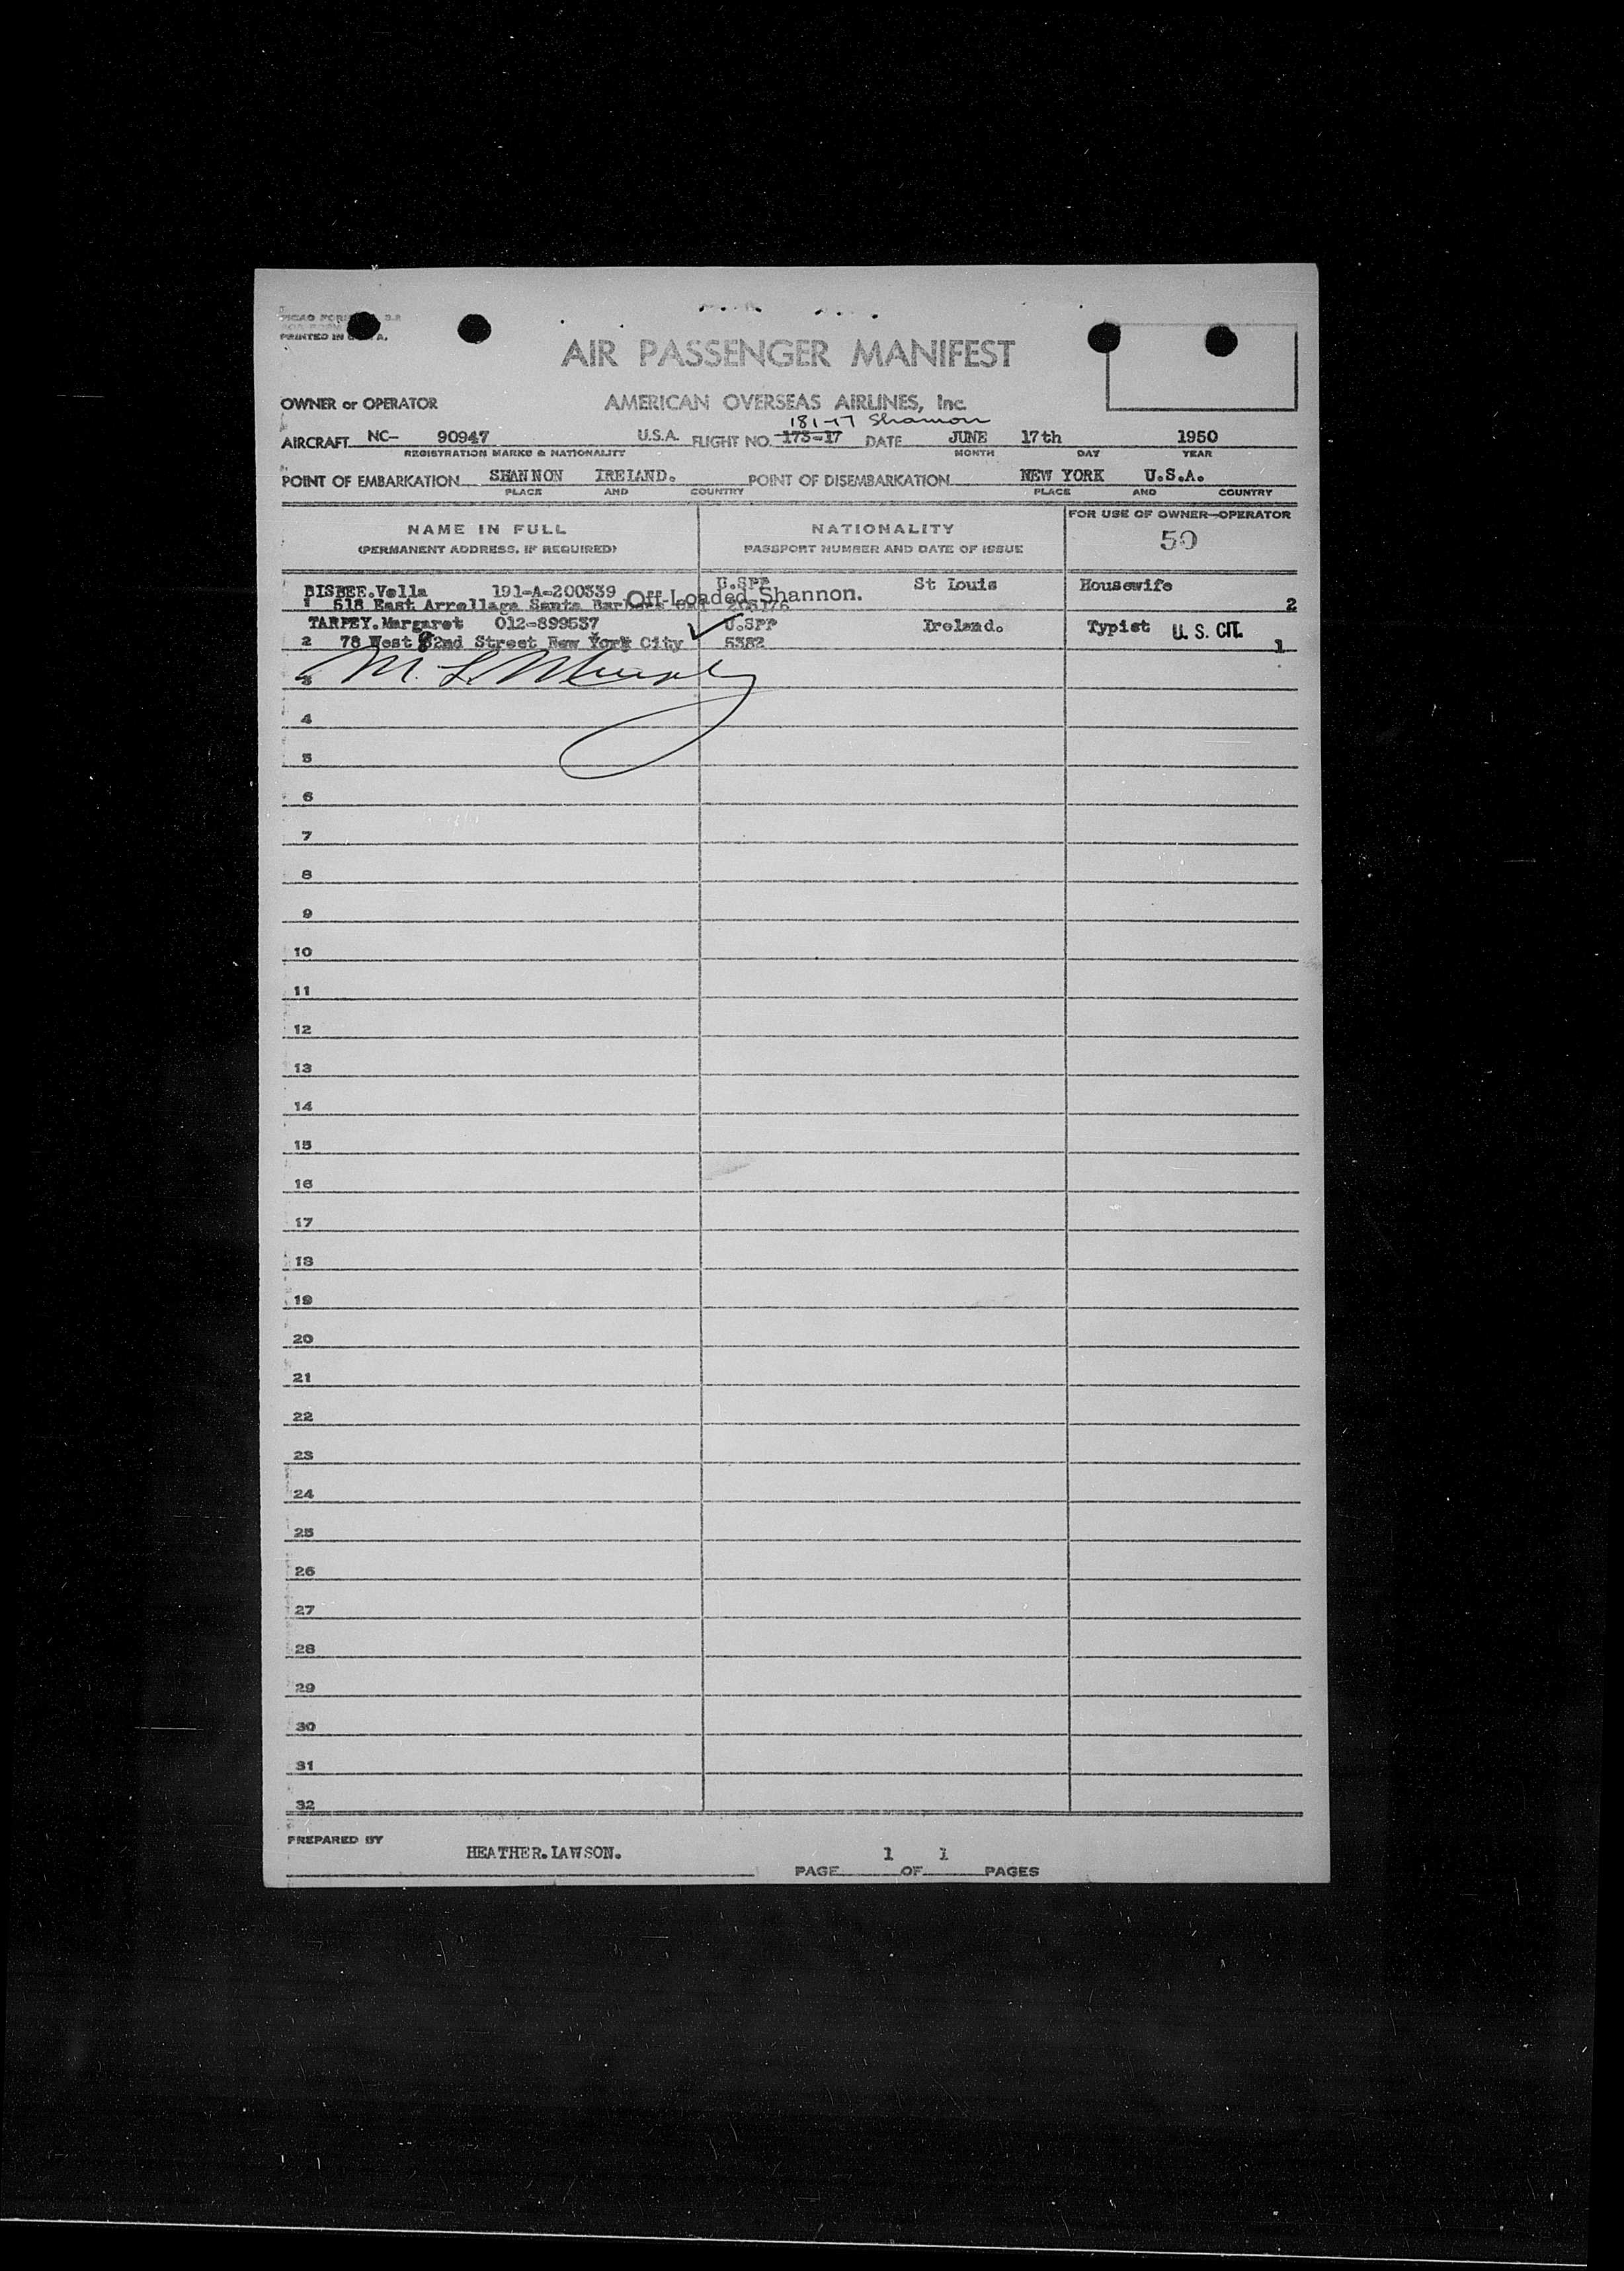 PRINTED IN U.S.A.
AIR PASSENGER MANIFEST
OWNER or OPERATOR AMERICAN OVERSEAS AIRLINES, Inc.
181-17 Shannon
AIRCRAFT NC- 90947 U.S.A. FLIGHT NO. 173-17 DATE JUNE 17th 1950
REGISTRATION MARKS & NATIONALITY MONTH DAY YEAR
POINT OF EMBARKATION SHANNON IRELAND. POINT OF DISEMBARKATION NEW YORK U.S.A.
PLACE AND COUNTRY PLACE AND COUNTRY
NAME IN FULL NATIONALITY FOR USE OF OWNER—OPERATOR
(PERMANENT ADDRESS, IF REQUIRED) PASSPORT NUMBER AND DATE OF ISSUE 50
BISBEE.Vella 191-A-200339 U.SPP St Louis Housewife
Off-Loaded Shannon.
1 518 East Arrellaga Santa Barbara 2
TARPEY.Margaret 012-899537 U.SPP Ireland. Typist U. S. CIT.
2 78 West 82nd Street New York City 5382 1
3
4
5
6
7
8
9
10
11
12
13
14
15
16
17
18
19
20
21
22
23
24
25
26
27
28
29
30
31
32
PREPARED BY HEATHER.LAWSON.
PAGE 1 OF 1 PAGES